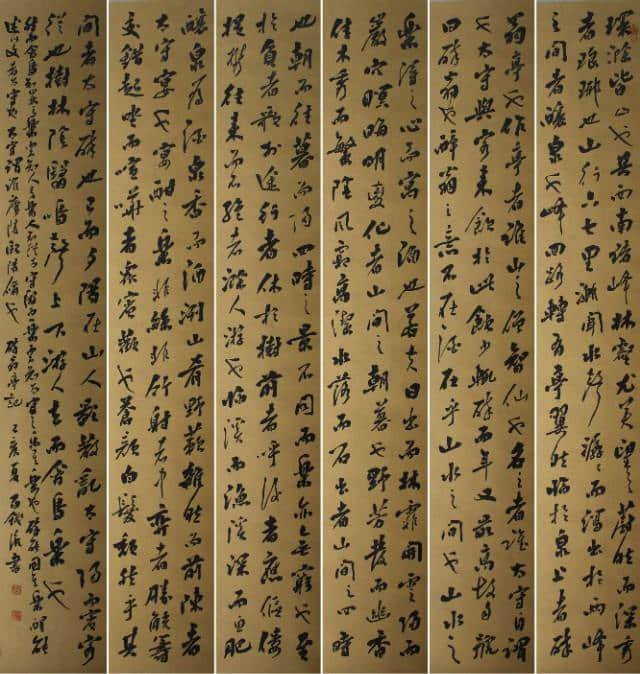 環滁皆山也其西南諸峰林壑尤美望之蔚然而深秀
者琅琊也山行六七里漸聞水聲潺潺而瀉出於兩峰
之間者釀泉也峰回路轉有亭翼然臨於泉上者醉
翁亭也作亭者誰山之僧智仙也名之者誰太守自謂
也太守與客來飲於此飲少輒醉而年又最高故自號
曰醉翁也醉翁之意不在酒在乎山水之間也山水之
樂得之心而寓之酒也若夫日出而林霏開雲歸而
巖穴暝晦明變化者山間之朝暮也野芳發而幽香
佳木秀而繁陰風霜高潔水落而石出者山間之四時
也朝而往暮而歸四時之景不同而樂亦無窮也至
於負者歌於途行者休於樹前者呼後者應傴僂
提攜往來而不絕者滁人遊也臨溪而漁溪深而魚肥
釀泉為酒泉香而酒洌山肴野蔌雜然而前陳者
太守宴也宴酣之樂非絲非竹射者中弈者勝觥籌
交錯起坐而喧嘩者眾賓歡也蒼顏白髮頹然乎其
間者太守醉也已而夕陽在山人影散亂太守歸而賓客
從也樹林陰翳鳴聲上下遊人去而禽鳥樂也
然而禽鳥知山林之樂而不知人之樂人知從太守遊而樂而不知太守之樂其樂也醉能同其樂醒能
述以文者太守也太守謂誰廬陵歐陽修也 醉翁亭記 亥夏 書